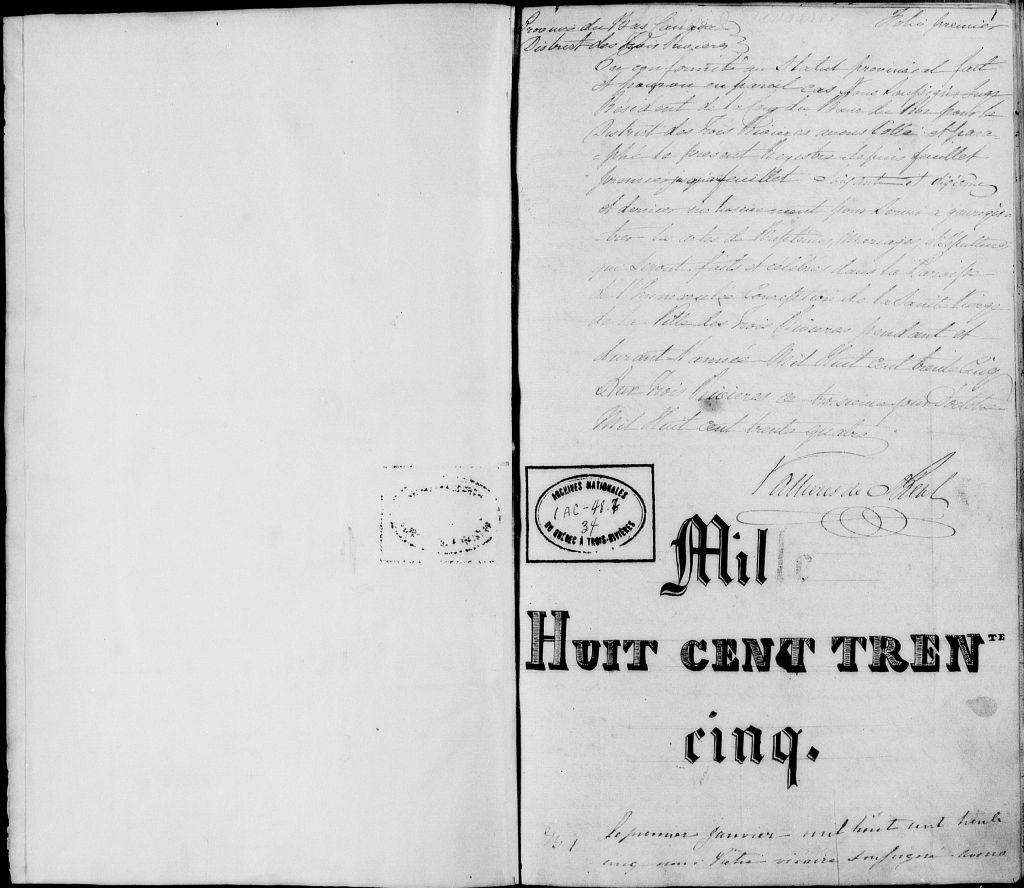 1
Province du Bas Canada
District des Trois Rivieres
Folio premier
En conformité au Statut provincial fait
et pourvu en pareil cas Nous Soussigné Juge
Resident de la Cour du Banc du Roi pour le
District des Trois Rivieres avons Cotté et para-
-phé le present Registre depuis feuillet
premier feuillet Soixante et dixième
et dernier inclusivement pour Servir a enregis-
-trer les actes de Baptêmes, Mariages, et Sepultures
qui Seront faits et célébrés dans la Paroisse
de l'Immaculée Conception de la Sainte Vierge
de la Ville des Trois Rivieres pendant et
durant l'année Mil Huit cent trente Cinq
Aux Trois Rivieres ce troisieme jour
Mil Huit cent trente quatre
Vallieres de St Real
ARCHIVES NATIONALES
1AC-48.
34
DU QUÉBEC À TROIS-RIVIÈRES
Mille
HUIT CENT TRENTE
cinq.
1 Le premier janvier mil huit cent trente
cinq nous Prêtre vicaire soussigné avons